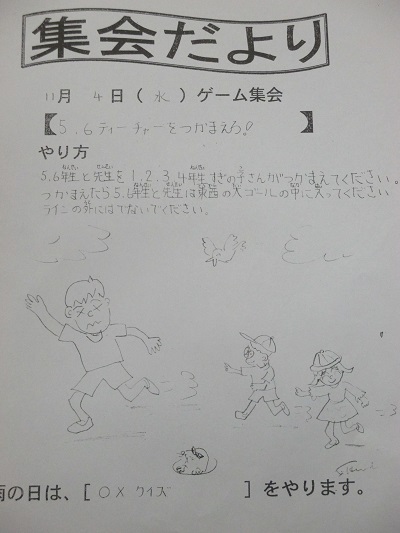 集会だより
11月 4日(水)ゲーム集会
【5.6ティーチャーをつかまえろ!】
やり方
5.6年生と先生を1.2.3.4年生すぎの子さんがつかまえてください。
つかまえたら5.6年生と先生は東西の大ゴールの中に入ってください
ラインの外にはでないでください。
雨の日は、[ ○× クイズ ]をやります。